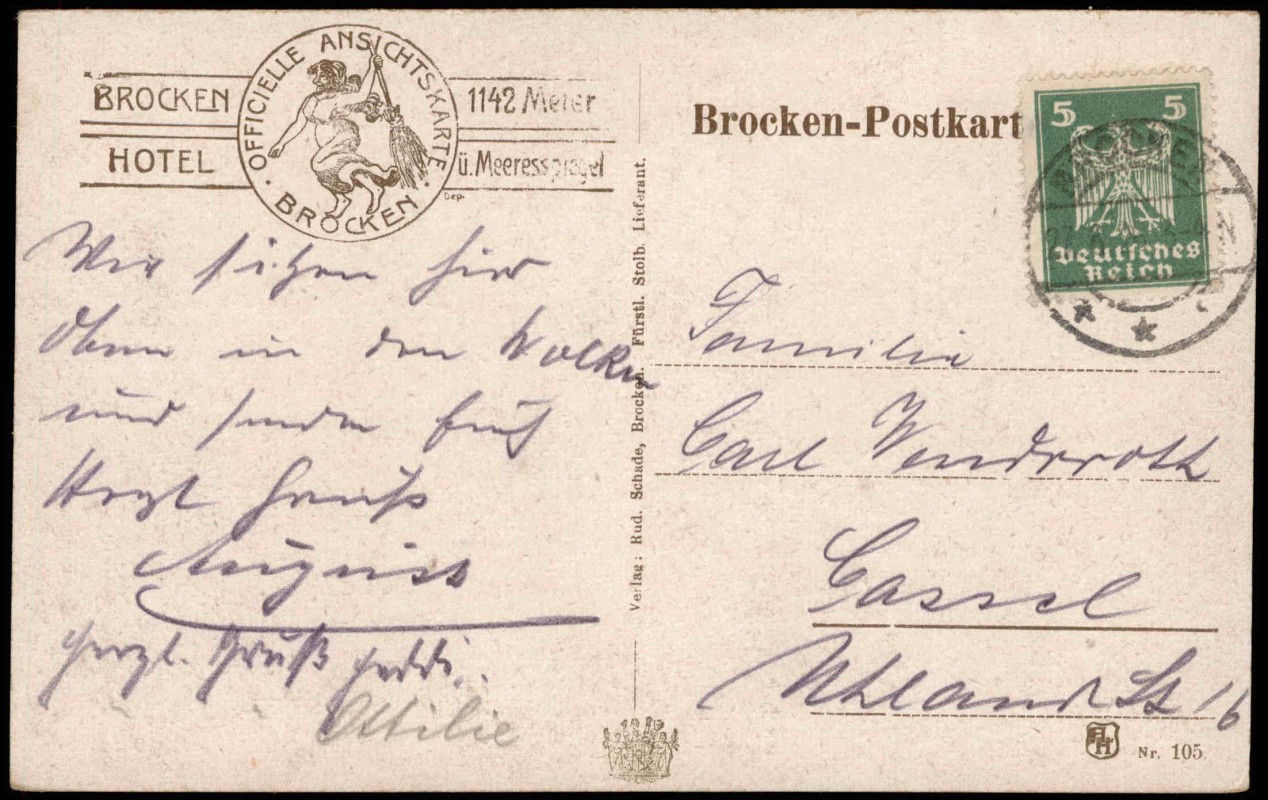 BROCKEN
HOTEL
OFFICIELLE ANSICHTSKARTE
· BROCKEN ·
1142 Meter
ü. Meeresspiegel
Dep.
Wir sitzen hier
oben in den Wolken
und senden Euch
Herzl Gruß
August
Herzl. Gruß Heddi..
Ottilie
Verlag: Rud. Schade, Brocken. Fürstl. Stolb. Lieferant.
Brocken-Postkart
5 5
Deutsches
Reich
Familie
Carl Wenderoth
Cassel
Uhland St 16
AH
Nr. 105.